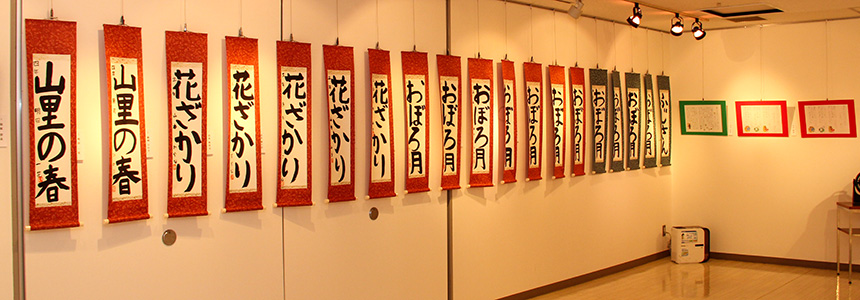 山里の春
山里の春
花ざかり
花ざかり
花ざかり
花ざかり
花ざかり
おぼろ月
おぼろ月
おぼろ月
おぼろ月
おぼろ月
おぼろ月
おぼろ月
おぼろ月
おぼろ月
おぼろ月
おぼろ月
ふじさん